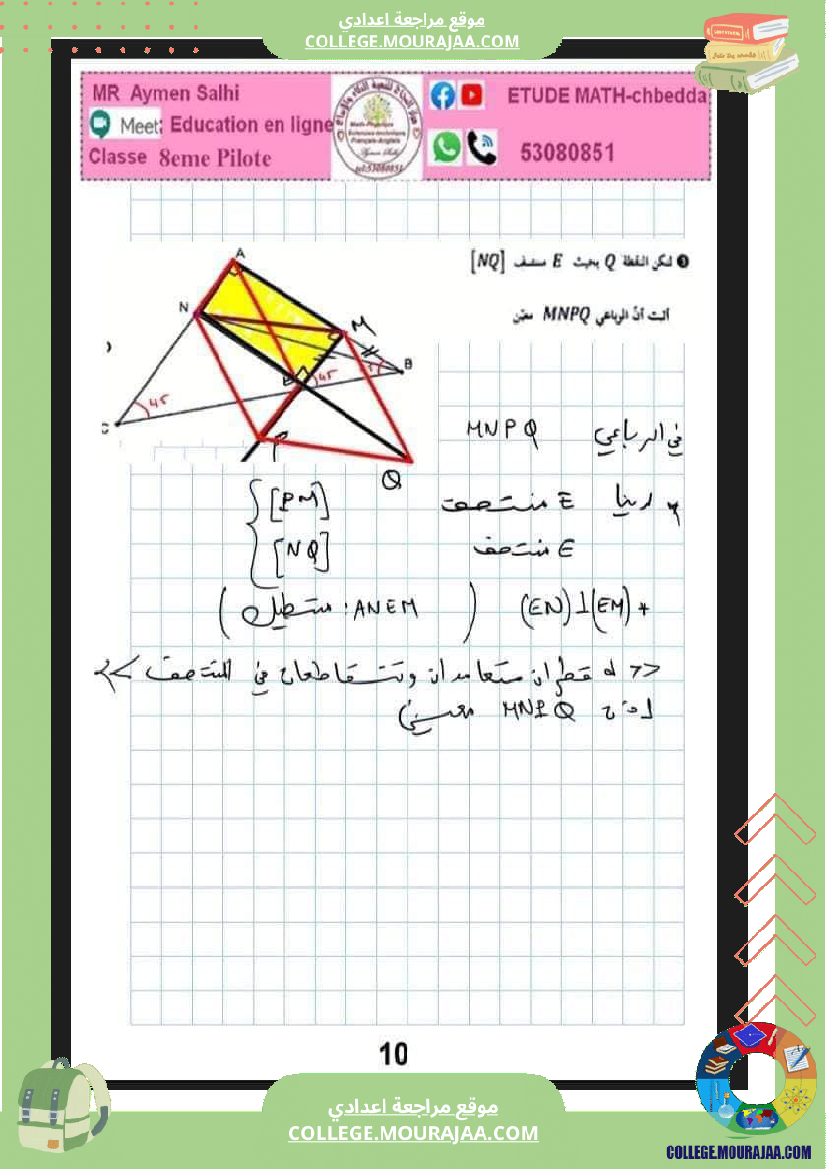 موقع مراجعة اعدادي
COLLEGE.MOURAJAA.COM
MR Aymen Salhi
Meet: Education en ligne
Classe 8eme Pilote
ETUDE MATH-chbedda
53080851
❸ لتكن النقطة Q بحيث E منتصف [NQ]
أثبت أنّ الرباعي MNPQ معيّن
A
N
M
B
E
45
45
C
P
Q
في الرباعي MNPQ
* لدينا E منتصف [PM]
E منتصف [NQ]
* (EM)⊥(EN) (ANEM: مستطيل)
<< له قطران متعامدان وتتقاطعان في المنتصف >>
إذن MNPQ معين
10
موقع مراجعة اعدادي
COLLEGE.MOURAJAA.COM
COLLEGE.MOURAJAA.COM